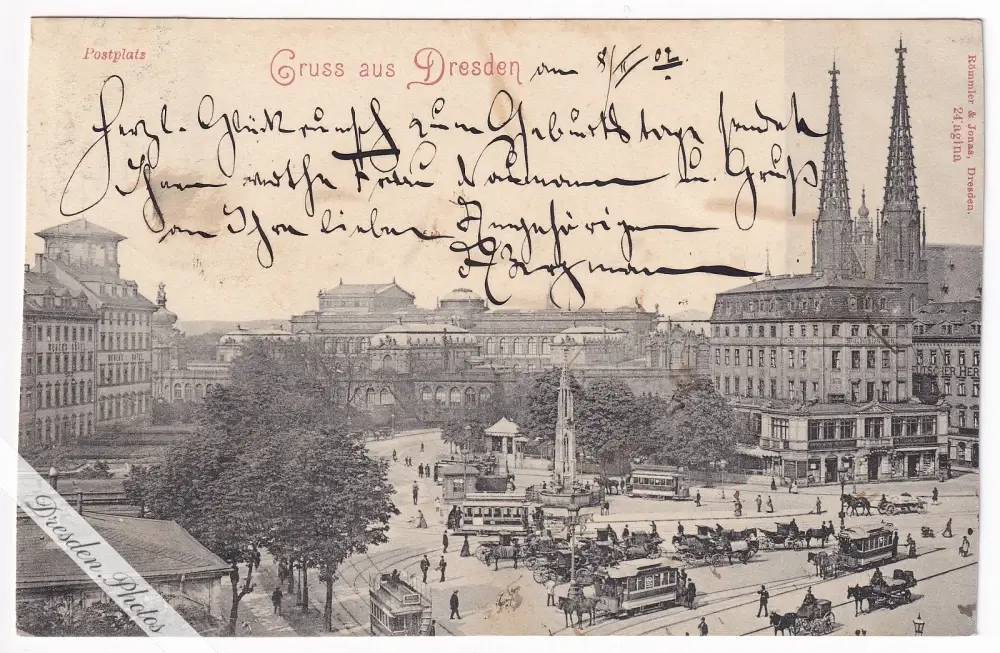 Postplatz
Gruss aus Dresden
am 8/II 02.
Herzl. Glückwunsch zum Geburtstage sendet
Ihnen werthe Frau Naumann u. Gruß
an Ihre lieben Angehörigen
Bergmann
Römmler & Jonas, Dresden.
24 agina
Dresden.Photos